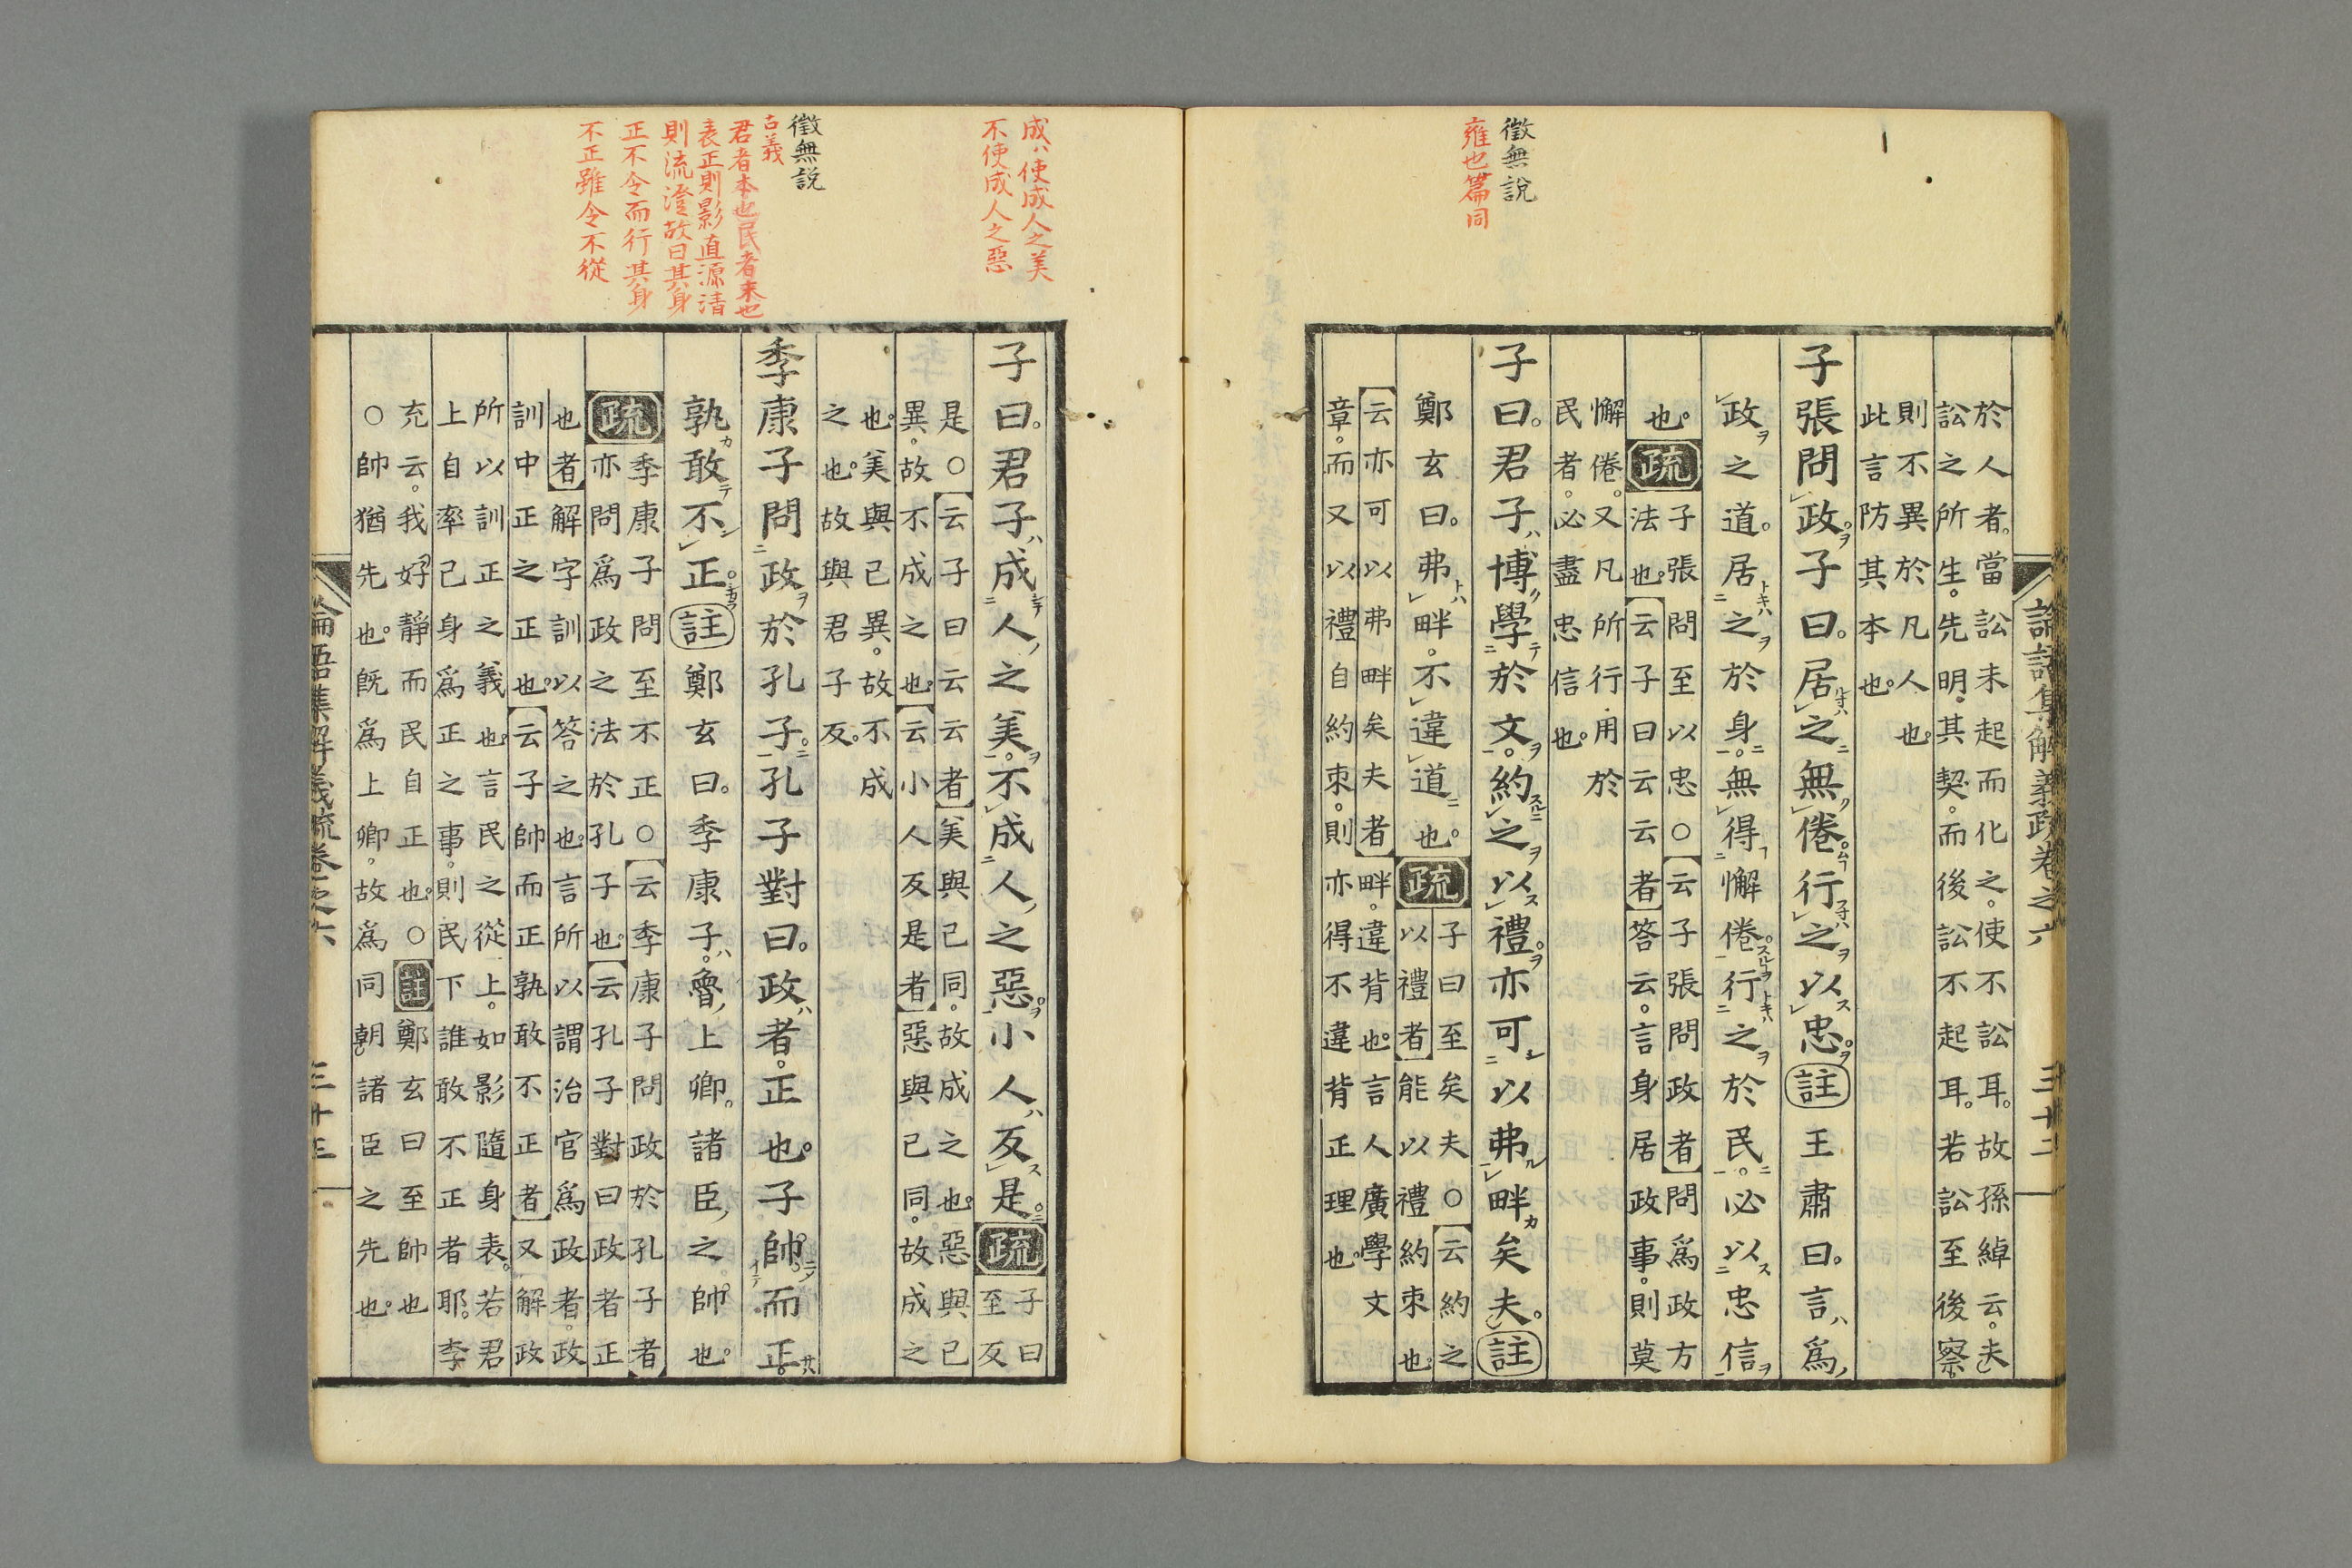 徵無說
雍也篇同
論語集解義疏卷之六
三十二
於人者當訟未起而化之使不訟耳故孫綽云夫
訟之所生先明其契而後訟不起耳若訟至後察
則不異於凡人也
此言防其本也
子張問政子曰居之無倦行之以忠註王肅曰言爲
政之道居之於身無得懈倦行之於民必以忠信
也疏子張問至以忠○云子張問政者問爲政方
法也云子曰云云者答云言身居政事則莫
懈倦又凡所行用於
民者必盡忠信也
子曰君子博學於文約之以禮亦可以弗畔矣夫註
鄭玄曰弗畔不違道也疏子曰至矣夫○云約之
以禮者能以禮約束也
云亦可以弗畔矣夫者畔違背也言人廣學文
章而又以禮自約束則亦得不違背正理也
成ハ使成人之美
不使成人之惡
徵無說
古義
君者本也民者末也
表正則影直源淸
則流澄故曰其身
正不令而行其身
不正雖令不從
子曰君子成人之美不成人之惡小人反是疏子曰
至反
是○云子曰云云者美與己同故成之也惡與己
異故不成之也云小人反是者惡與己同故成之
也美與己異故不成
之也故與君子反
季康子問政於孔子孔子對曰政者正也子帥而正
孰敢不正註鄭玄曰季康子魯上卿諸臣之帥也
疏季康子問至不正○云季康子問政於孔子者
亦問爲政之法於孔子也云孔子對曰政者正
也者解字訓以答之也言所以謂治官爲政者政
訓中正之正也云子帥而正孰敢不正者又解政
所以訓正之義也言民之從上如影隨身表若君
上自率己身爲正之事則民下誰敢不正者耶李
充云我好靜而民自正也○註鄭玄曰至帥也
○帥猶先也旣爲上卿故爲同朝諸臣之先也
論語集解義疏卷之六
三十三